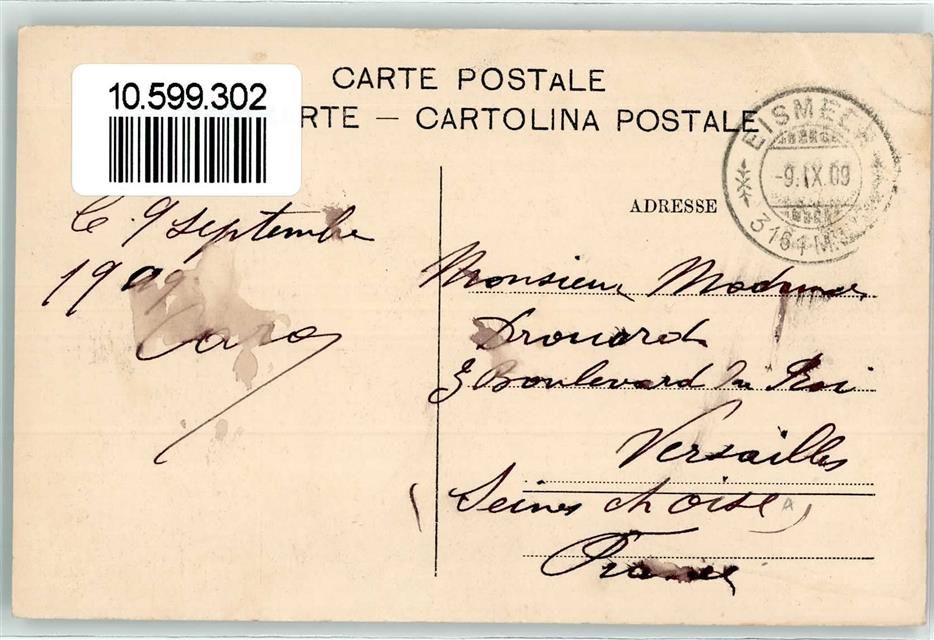 CARTE POSTALE
10.599.302
RTE — CARTOLINA POSTALE
EISMEER
-9.IX.09
3161 M.
ADRESSE
Le 9 Septembre
1909
Monsieur Madame
Drouard
3 Boulevard du Roi
Versailles
(Seine et Oise)
France